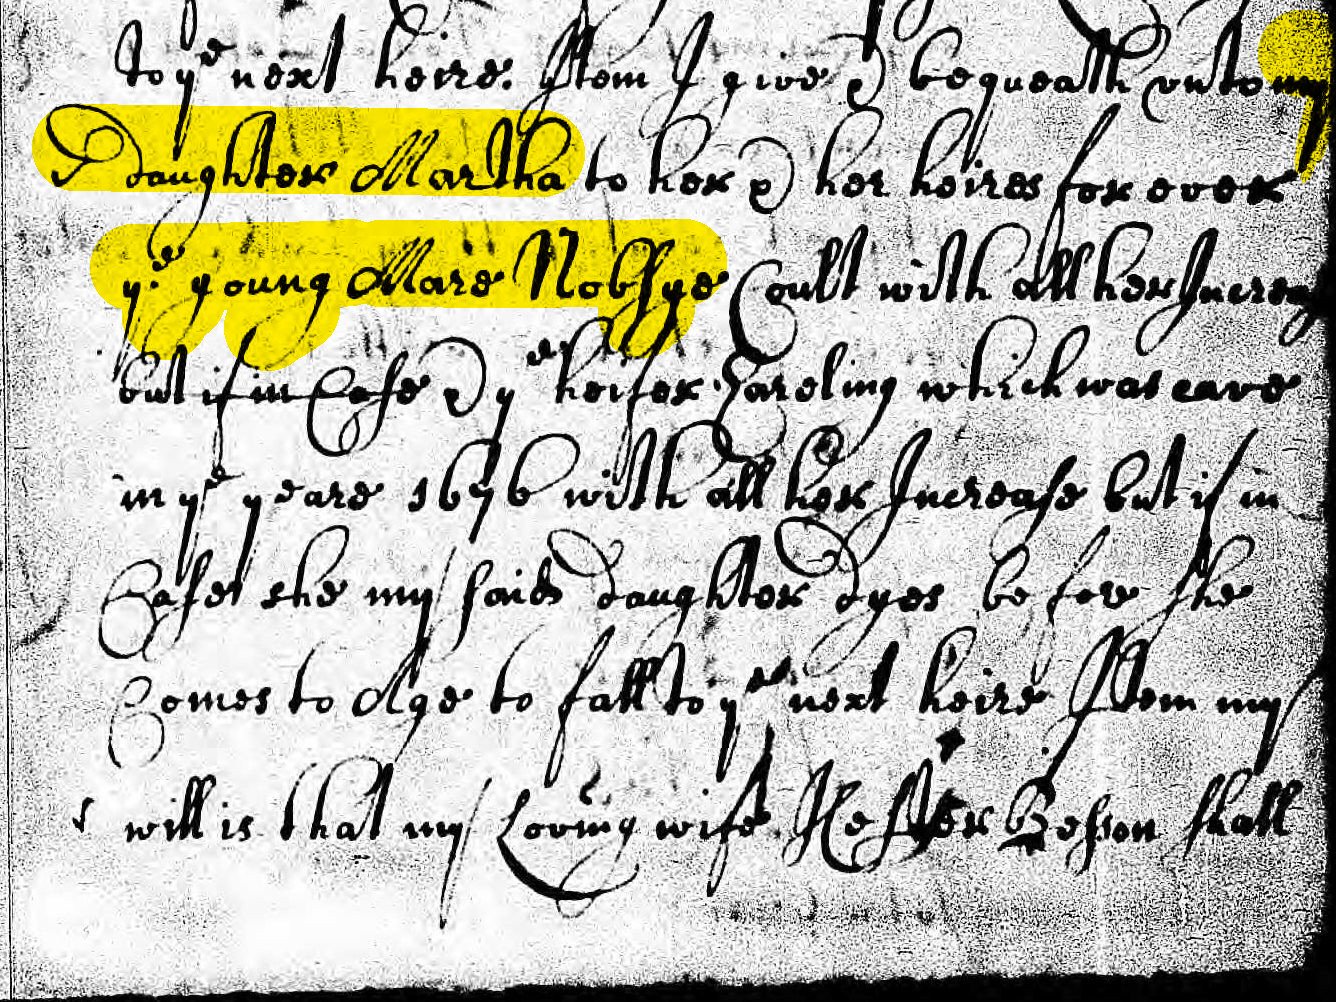 to ye next heire. Item I give & bequeath unto my
Daughter Martha to her & her heires for ever
ye young Mare Nobsye Coult with all her Increas
but if in Case & ye heifer Yareling which was cave
in ye yeare 1676 with all her Increase but if in
Case she my said daughter dyes before she
Comes to Age to fall to ye next heire Item my
will is that my Loving wife Hester Besson shall